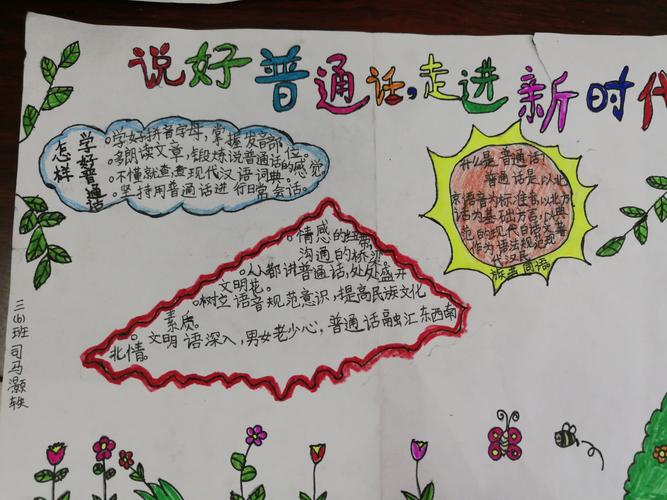 说好普通话,走进新时代
怎样
学好普通话
。学好拼音字母,掌握发音部位。
。多朗读文章,锻炼说普通话的感觉
。不懂就查查现代汉语词典。
。坚持用普通话进行日常会话。
什么是普通话?
普通话是以北
京语音为标准音,以北方
话为基础方言,以典
范的现代白话文著
作为语法规范的
现代汉民
族共同语。
。情感的纽带,
沟通的桥梁。
。人人都讲普通话,处处盛开
文明花。
。树立语音规范意识,提高民族文化
素质。
。文明语深入,男女老少心,普通话融汇东西南
北情。
三(6)班 司马灏轶